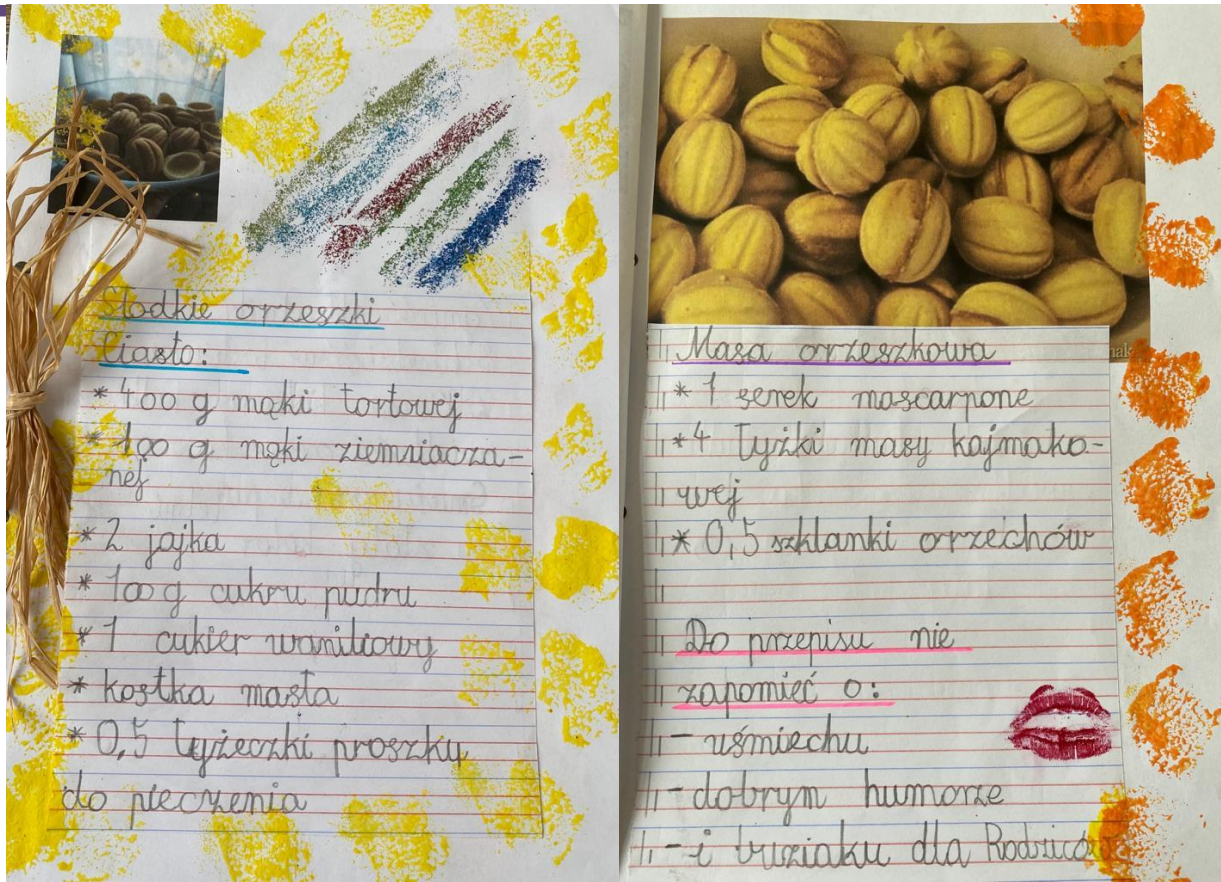 Słodkie orzeszki
Ciasto:
* 400 g mąki tortowej
* 100 g mąki ziemniacza-
nej
* 2 jajka
* 100 g cukru pudru
* 1 cukier waniliowy
* kostka masła
* 0,5 łyżeczki proszku
do pieczenia
Masa orzeszkowa
* 1 serek mascarpone
* 4 łyżki masy kajmako-
wej
* 0,5 szklanki orzechów
Do przepisu nie
zapomieć o:
- uśmiechu
- dobrym humorze
- i buziaku dla Rodziców